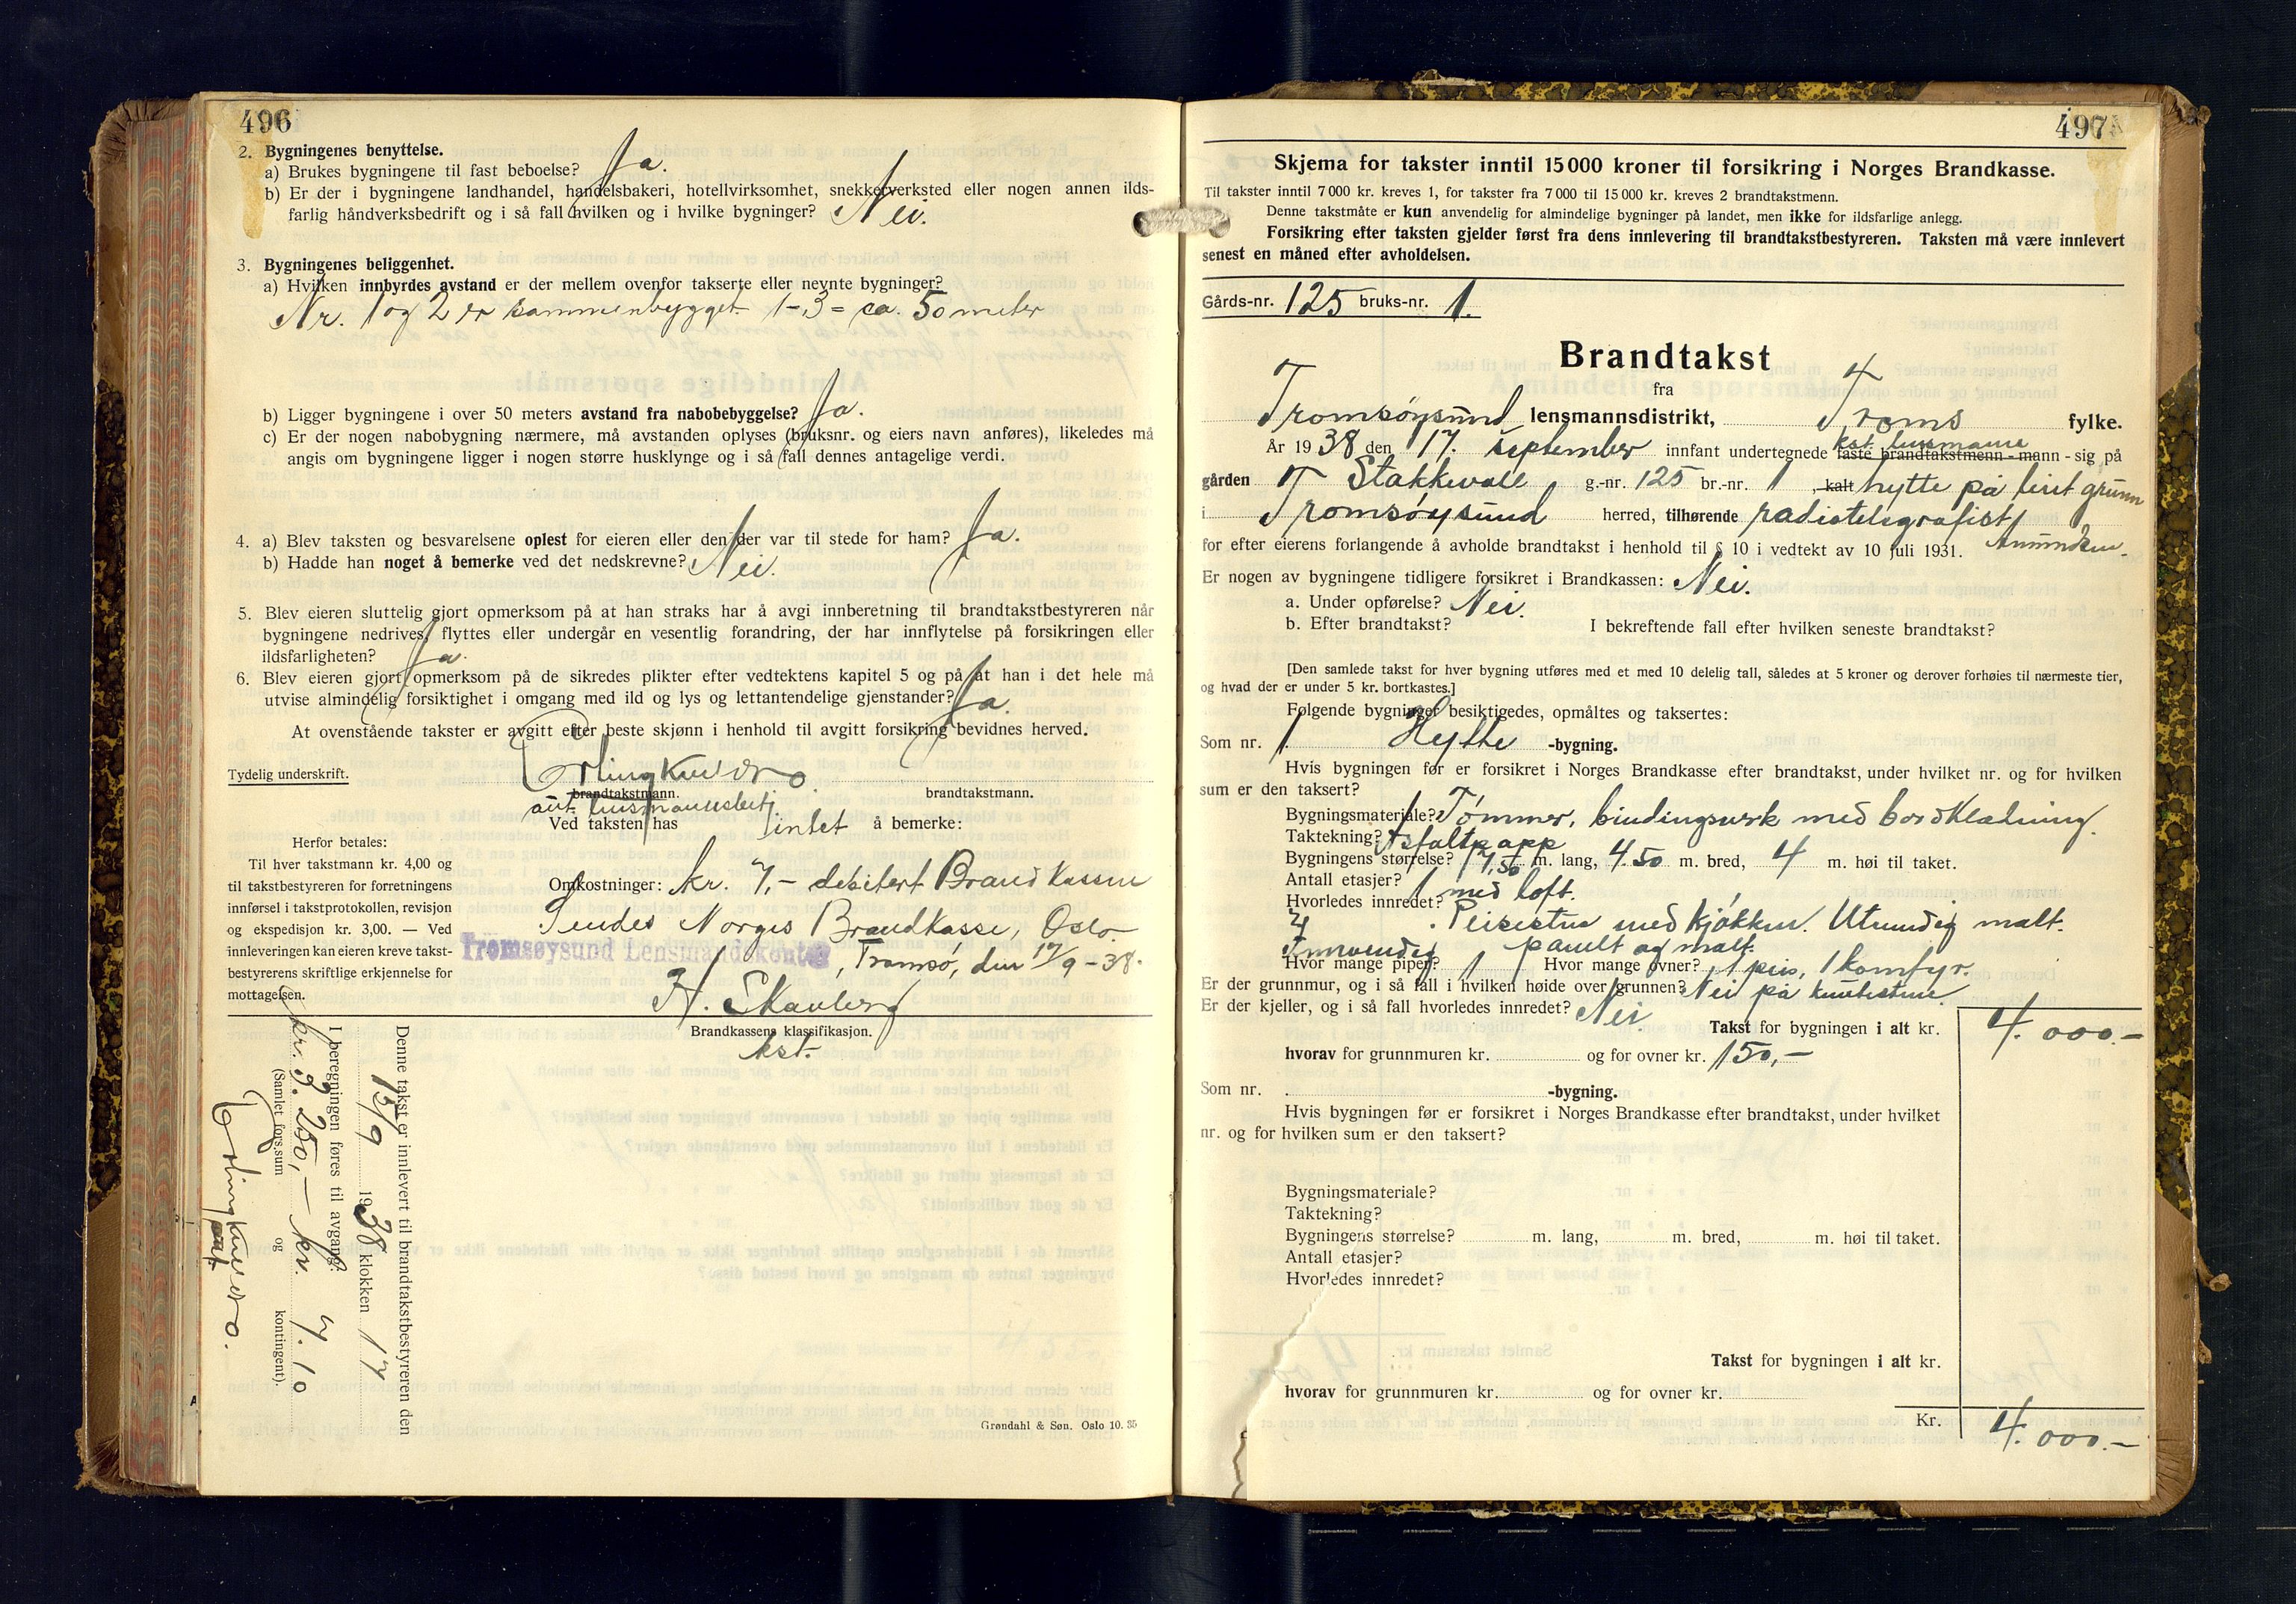 496
2. Bygningenes benyttelse.
a) Brukes bygningene til fast beboelse? Ja.
b) Er der i bygningene landhandel, handelsbakeri, hotellvirksomhet, snekkerverksted eller nogen annen ilds-
farlig håndverksbedrift og i så fall hvilken og i hvilke bygninger? Nei.
3. Bygningenes beliggenhet.
a) Hvilken innbyrdes avstand er der mellem ovenfor takserte eller nevnte bygninger?
Nr. 1 og 2 er sammenbygget. 1-3 = ca. 50 meter
b) Ligger bygningene i over 50 meters avstand fra nabobebyggelse? Ja.
c) Er der nogen nabobygning nærmere, må avstanden oplyses (bruksnr. og eiers navn anføres), likeledes må
angis om bygningene ligger i nogen større husklynge og i så fall dennes antagelige verdi.
4. a) Blev taksten og besvarelsene oplest for eieren eller den der var til stede for ham? Ja.
b) Hadde han noget å bemerke ved det nedskrevne? Nei.
5. Blev eieren sluttelig gjort opmerksom på at han straks har å avgi innberetning til brandtakstbestyreren når
bygningene nedrives, flyttes eller undergår en vesentlig forandring, der har innflytelse på forsikringen eller
ildsfarligheten? Ja.
6. Blev eieren gjort opmerksom på de sikredes plikter efter vedtektens kapitel 5 og på at han i det hele må
utvise almindelig forsiktighet i omgang med ild og lys og lettantendelige gjenstander? Ja.
At ovenstående takster er avgitt efter beste skjønn i henhold til avgitt forsikring bevidnes herved.
Tydelig underskrift. Erling
brandtakstmann. brandtakstmann.
aut. lensmannsbetj
Ved taksten has intet å bemerke:
Herfor betales:
Til hver takstmann kr. 4,00 og
til takstbestyreren for forretningens
innførsel i takstprotokollen, revisjon
og ekspedisjon kr. 3,00. — Ved
innleveringen kan eieren kreve takst-
bestyrerens skriftlige erkjennelse for
mottagelsen.
Omkostninger: Kr. 7,- debitert Brandkassen
Sendes Norges Brandkasse, Oslo.
Tromsøysund Lensmannskontor, Tromsø, den 17/9-38.
H. Skavberg
kst.
Brandkassens klassifikasjon.
Denne takst er innlevert til brandtakstbestyreren den
15/9 1938 klokken 17
I beregningen føres til avgang:
kr. 3.250,- kr. 7.10
(Samlet fors.sum og kontingent).
Erling
Grøndahl & Søn. Oslo 10. 35
497
Skjema for takster inntil 15000 kroner til forsikring i Norges Brandkasse.
Til takster inntil 7000 kr. kreves 1, for takster fra 7000 til 15000 kr. kreves 2 brandtakstmenn.
Denne takstmåte er kun anvendelig for almindelige bygninger på landet, men ikke for ildsfarlige anlegg.
Forsikring efter taksten gjelder først fra dens innlevering til brandtakstbestyreren. Taksten må være innlevert
senest en måned efter avholdelsen.
Gårds-nr. 125 bruks-nr. 1.
Brandtakst
fra
Tromsøysund lensmannsdistrikt, Troms fylke.
År 1938 den 17. september innfant undertegnede faste brandtakstmenn - mann - sig på
kst. lensmann
gården Stakkevoll g.-nr. 125 br.-nr. 1, kalt hytte på leiet grunn
i Tromsøysund herred, tilhørende radiotelegrafist
Amundsen.
for efter eierens forlangende å avholde brandtakst i henhold til § 10 i vedtekt av 10 juli 1931.
Er nogen av bygningene tidligere forsikret i Brandkassen: Nei.
a. Under opførelse? Nei.
b. Efter brandtakst? I bekreftende fall efter hvilken seneste brandtakst?
[Den samlede takst for hver bygning utføres med et med 10 delelig tall, således at 5 kroner og derover forhøies til nærmeste tier,
og hvad der er under 5 kr. bortkastes.]
Følgende bygninger besiktigedes, opmåltes og taksertes:
Som nr. 1. Hytte -bygning.
Hvis bygningen før er forsikret i Norges Brandkasse efter brandtakst, under hvilket nr. og for hvilken
sum er den taksert?
Bygningsmateriale? Tømmer, bindingsverk med bordklædning.
Taktekning? Asfaltpapp
Bygningens størrelse? 7,50 m. lang, 4.50 m. bred, 4 m. høi til taket.
Antall etasjer? 1 med loft.
Hvorledes innredet?
Peisestue med kjøkken. Utvendig malt.
Innvendig panelt og malt.
Hvor mange piper? 1 Hvor mange ovner? 1 peis, 1 komfyr.
Er der grunnmur, og i så fall i hvilken høide over grunnen? Nei på
Er der kjeller, og i så fall hvorledes innredet? Nei.
Takst for bygningen i alt kr. 4.000.-
hvorav for grunnmuren kr. og for ovner kr. 150,-
Som nr. -bygning.
Hvis bygningen før er forsikret i Norges Brandkasse efter brandtakst, under hvilket
nr. og for hvilken sum er den taksert?
Bygningsmateriale?
Taktekning?
Bygningens størrelse? m. lang, m. bred, m. høi til taket.
Antall etasjer?
Hvorledes innredet?
Takst for bygningen i alt kr.
hvorav for grunnmuren kr. og for ovner kr.
Kr. 4.000.-